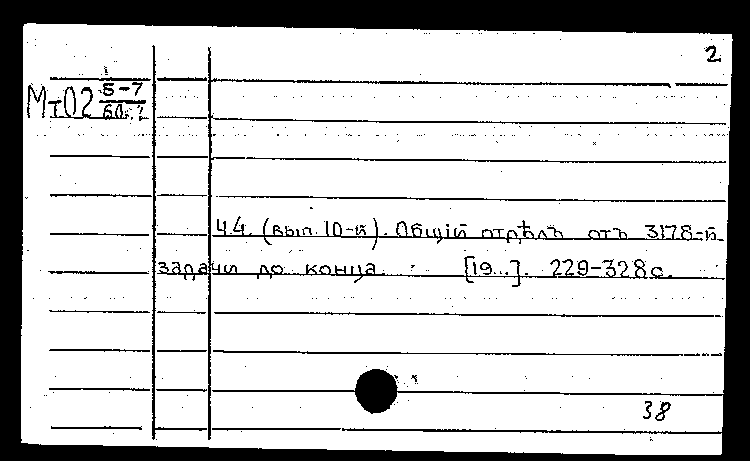 2
Мт02 5-7
Ч.4. (вып. 10-й). Общій отдѣлъ отъ 3178-й
задачи до конца. [19...]. 229-328 с.
38